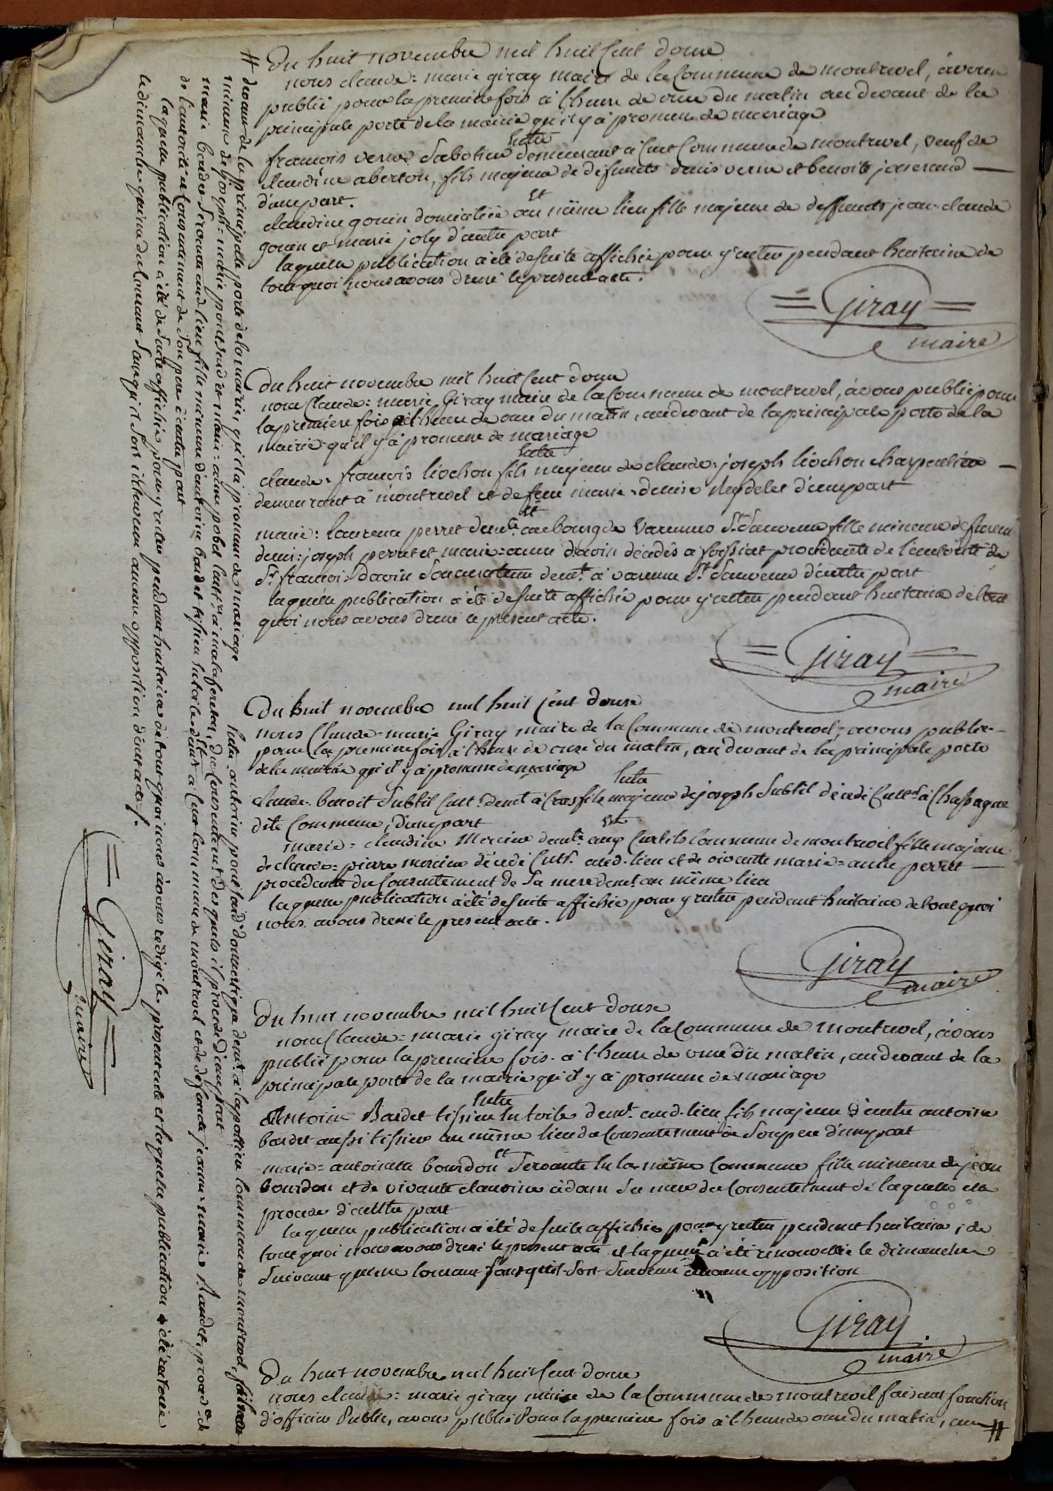 Du huit novembre mil huit Cent douze
nous claude = marie giray maire de la Commune de montrevel, avons
publié pour la premiere fois à l'heure de onze du matin au devant de la
principale porte de la mairie qu'il y a promesse de mariage
Entre
françois verne Sabotier demeurant à Cure Commune de montrevel, veuf de
claudine aberton, fils majeur de defunts denis verne et benoite
d'une part.
Et
claudine gonin domiciliée au même lieu fille majeure de deffunts jean-claude
gonin et marie joly d'autre part
laquelle publication a été de suite affichée pour y rester pendant huitaine de
tout quoi nous avons dressé le present acte.
= Giray =
maire
Du huit novembre mil huit Cent douze
nous Claude = marie Giray maire de la Commune de montrevel, avons publié pour
la premiere fois à l'heure de onze du matin, au devant de la principale porte de la
mairie qu'il y a promesse de mariage
Entre
claude = françois liochon fils majeur de claude = joseph liochon charpentier
demeurant à montrevel et de feue marie = denise d'une part
et
marie = laurence perret demt. au bourg de Varennes St. Sauveur fille mineure de
denis = joseph perret et marie = anne davoin décédés à foissiat procédante de l'autorité de
Sr. françois davoin Son curateur demt. à varenne St. Sauveur d'autre part
laquelle publication a été de suite affichée pour y rester pendant huitaine de tout
quoi nous avons dressé le present acte.
= Giray =
maire
Du huit novembre mil huit Cent douze
nous Claude = marie Giray maire de la Commune de montrevel, avons publié
pour la premiere fois à l'heure de onze du matin, au devant de la principale porte
de la mairie qu'il y a promesse de mariage
Entre
claude = benoit Subtil Cult. demt. à Cras fils majeur de joseph Subtil décédé Cultr. à
dite Commune, d'une part
Et
marie = claudine Mercier demte. aux Curtils Commune de montrevel fille majeure
de claude = pierre mercier décédé Cultr. aud. lieu et de vivante marie = anne perret
procédante du Consentement de Sa mere demt. au même lieu
laquelle publication a été de suite affichée pour y rester pendant huitaine de tout quoi
nous avons dressé le present acte.
Giray
maire
Du huit novembre mil huit Cent douze
nous Claude = marie giray maire de la Commune de montrevel, avons
publié pour la premiere fois à l'heure de onze du matin, au devant de la
principale porte de la mairie qu'il y a promesse de mariage
Entre
Antoine Bardet tissier en toile demt. aud. lieu fils majeur d'autre antoine
bardet aussi tissier au même lieu du Consentement de Son pere d'une part
et
marie = antoinette bourdon Servante en la même Commune fille mineure de jean
Bourdon et de vivante claudine adam Sa mere du Consentement de laquelle elle
procede d'autre part
laquelle publication a été de suite affichée pour y rester pendant huitaine, de
tout quoi nous avons dressé le present acte et laquelle a été renouvellée le dimanche
Suivant quinze Courant Sans qu'il Soit Survenu aucune opposition
Giray
maire
Du huit novembre mil huit Cent douze
nous claude = marie giray maire de la Commune de montrevel faisant fonction
d'officier Public, avons publié Pour la premiere fois à l'heure de onze du matin, au #
# devant de la principalle porte de la mairie, qu'il y a promesse de mariage
Entre antoine pont domestique demt. à Commune de montrevel, fils
mineur de joseph = marie pont et de marie = aime pobel, du Consentement desquels il procede d'une part
Et
marie bardet Servante aud. lieu fille mineure d'antoine bardet tissier en toile demt. à Commune de montrevel et de defunte jeanne = marie procede
de l'autorité et Consentement de Son pere d'autre part
laquelle publication a été de Suite affichée pour y rester pendant huitaine de tout quoi nous avons redigé le present acte et laquelle publication a été réiterée
le dimanche quinze du Courant Sans qu'il Soit intervenu aucune opposition dont acte.
= Giray =
maire